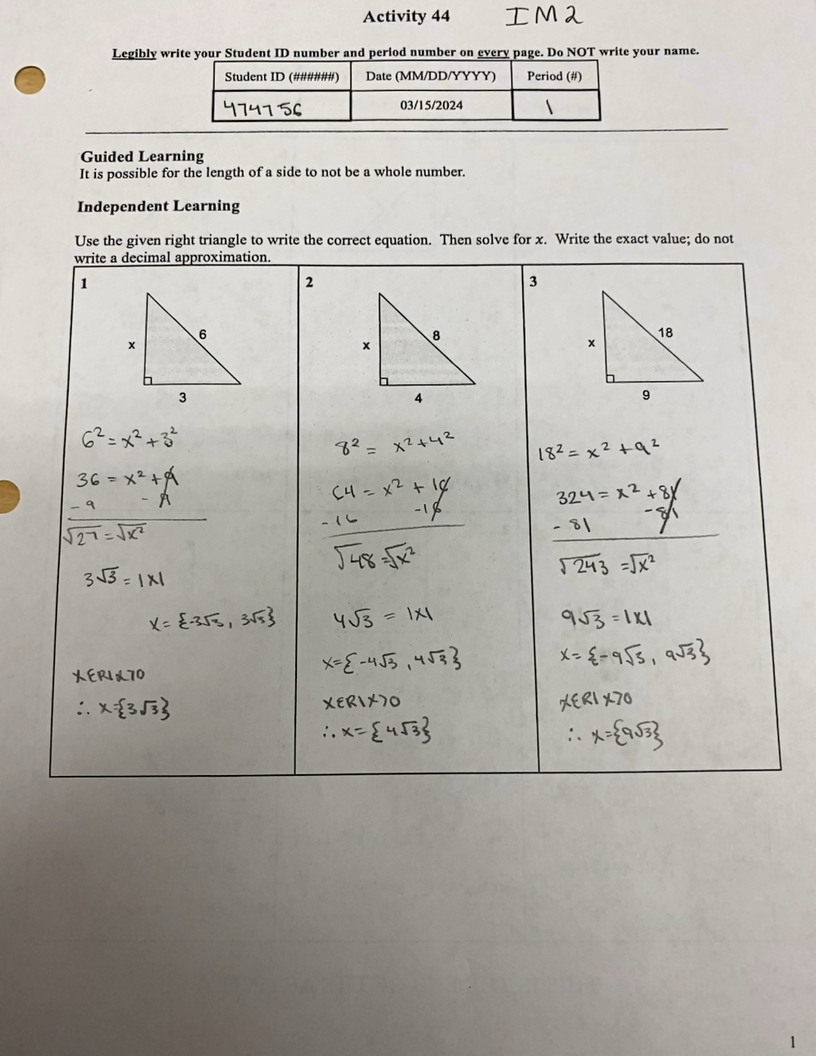 Activity 44 IM2
Legibly write your Student ID number and period number on every page. Do NOT write your name.
Student ID (######) Date (MM/DD/YYYY) Period (#)
474756 03/15/2024 1
Guided Learning
It is possible for the length of a side to not be a whole number.
Independent Learning
Use the given right triangle to write the correct equation. Then solve for x. Write the exact value; do not
write a decimal approximation.
1
x
6
3
6² = x² + 3²
36 = x² + 9
- 9 - 9
√27 = √x²
3√3 = |x|
x = {-3√3, 3√3}
x∈ℝ|x>0
∴ x={3√3}
2
x
8
4
8² = x² + 4²
64 = x² + 16
- 16 - 16
√48 = √x²
4√3 = |x|
x={-4√3, 4√3}
x∈ℝ|x>0
∴ x={4√3}
3
x
18
9
18² = x² + 9²
324 = x² + 81
- 81 - 81
√243 = √x²
9√3 = |x|
x= {-9√3, 9√3}
x∈ℝ|x>0
∴ x={9√3}
1